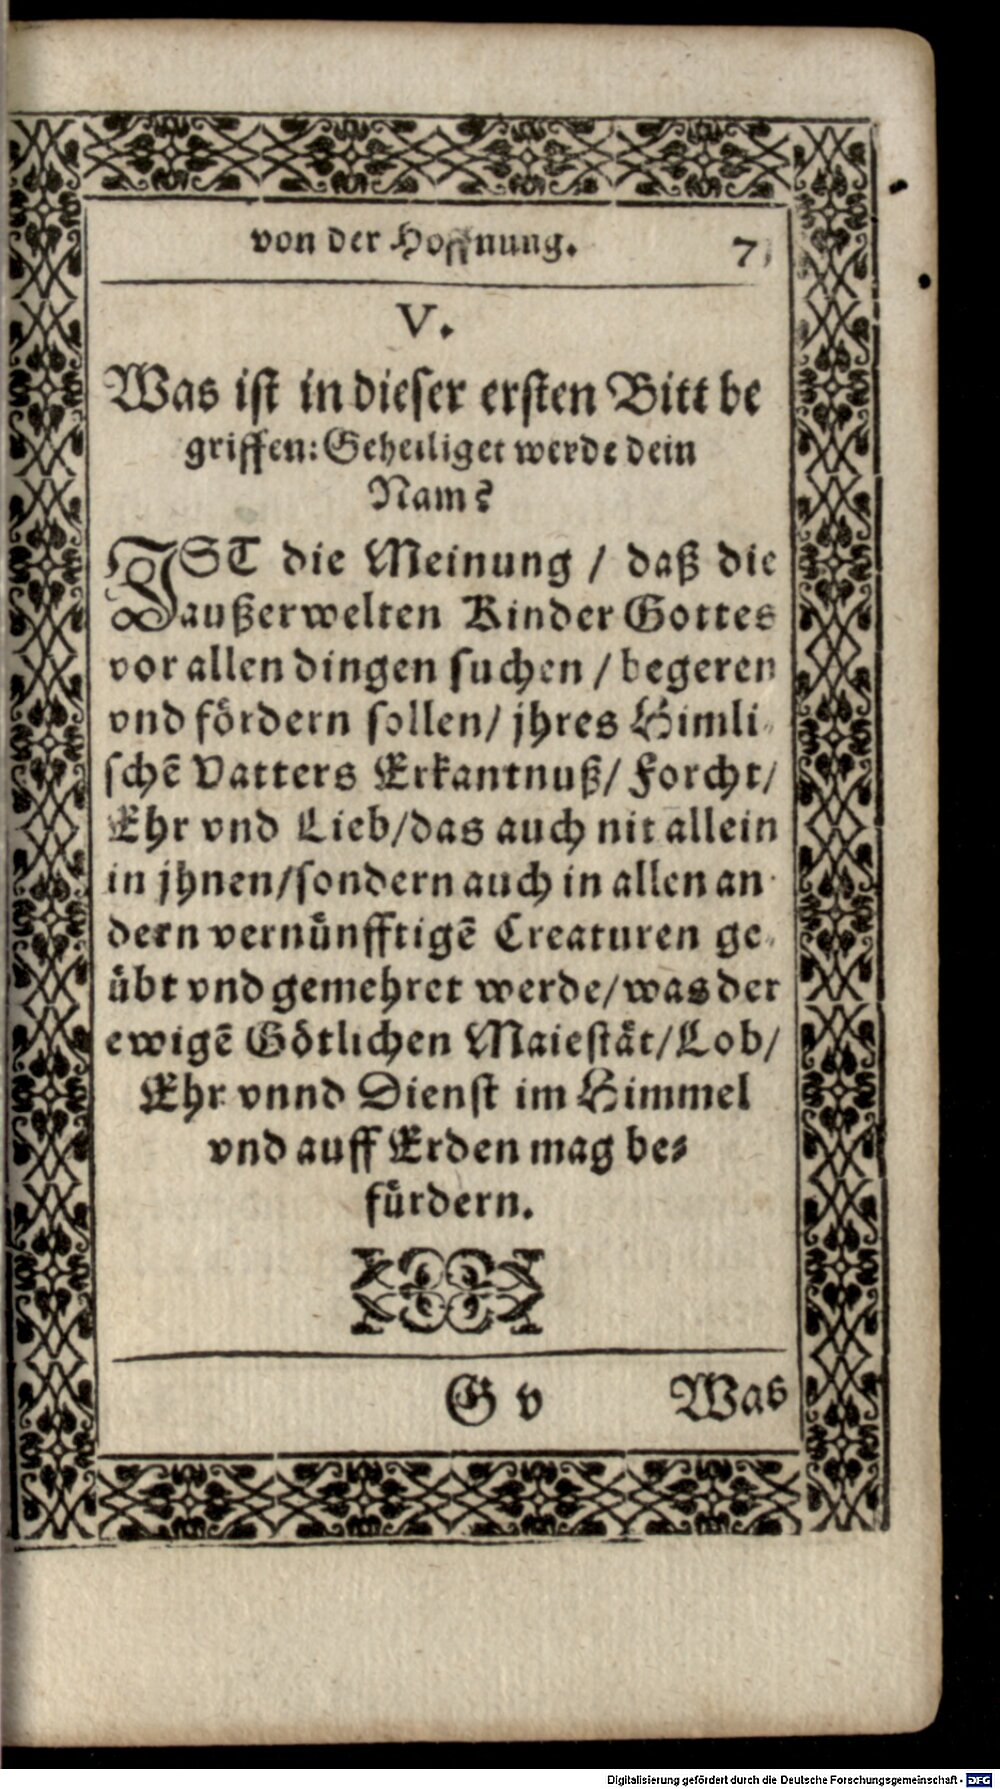 von der Hoffnung. 7
V.
Was ist in dieser ersten Bitt be
griffen: Geheiliget werde dein
Nam?
IST die Meinung / daß die
außerwelten Kinder Gottes
vor allen dingen suchen / begeren
vnd fördern sollen/ jhres Himli-
schē Vatters Erkantnuß/ Forcht/
Ehr vnd Lieb/das auch nit allein
in jhnen/sondern auch in allen an-
dern vernünfftigē Creaturen ge-
übt vnd gemehret werde/was der
ewigē Götlichen Maiestät/Lob/
Ehr vnnd Dienst im Himmel
vnd auff Erden mag be-
fürdern.
G v Was
Digitalisierung gefördert durch die Deutsche Forschungsgemeinschaft - DFG